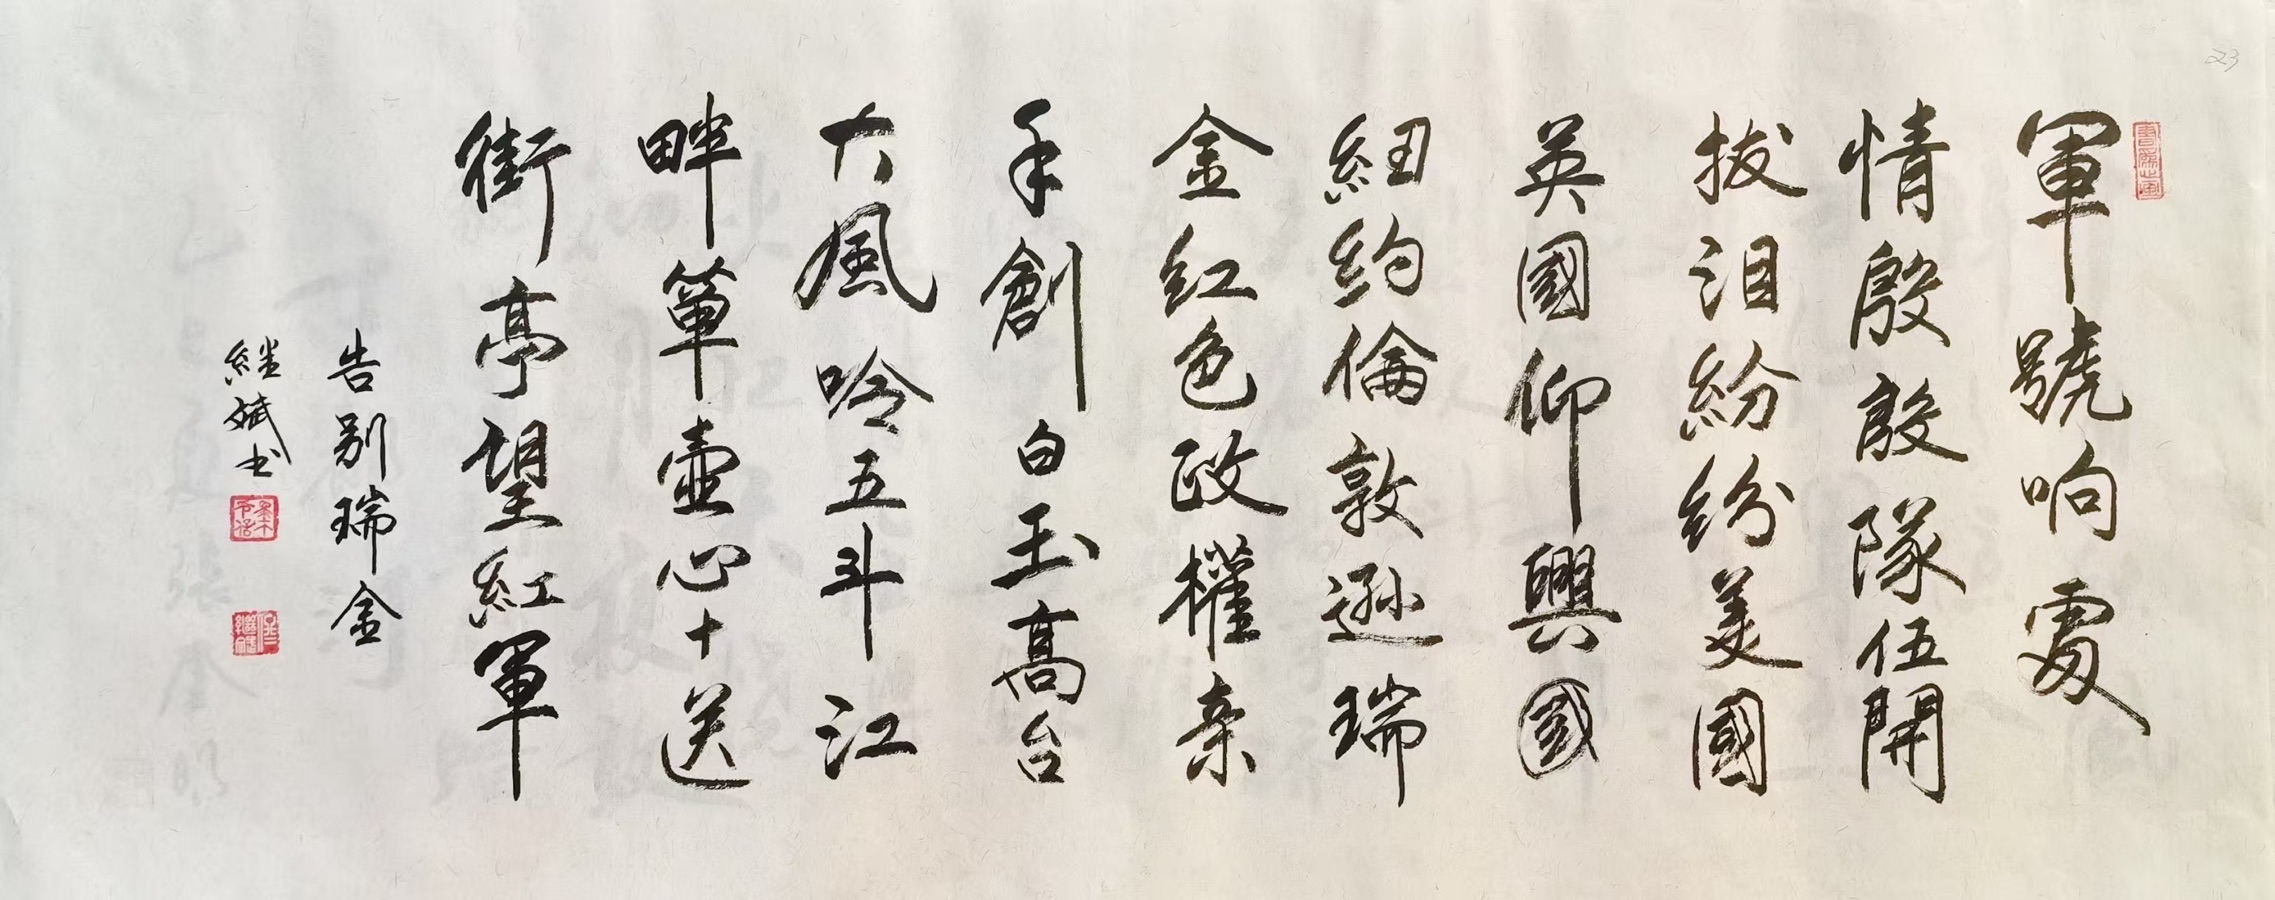 軍號响處
情殷殷隊伍開
拔泪紛紛美國
英國仰興國
紐約倫敦遜瑞
金紅色政權亲
手創白玉高台
大風吟五斗江
畔簞壺心十送
街亭望紅軍
告别瑞金
继斌书
23